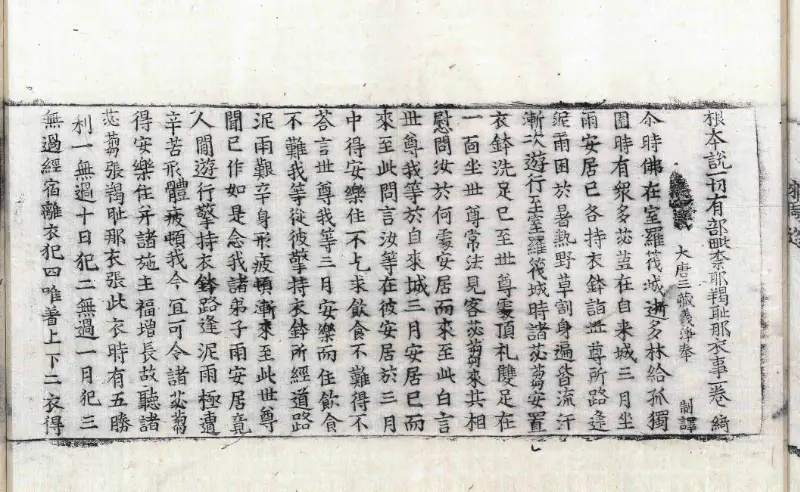 根本說一切有部毗柰耶羯恥那衣事一卷 綺
大唐三藏義淨奉 制譯
尒時佛在室羅筏城逝多林給孤獨
園時有衆多苾芻在自来城三月坐
雨安居已各持衣鉢詣世尊所路逢
泥雨困於暑熱野草割身遍皆流汗
漸次遊行至室羅筏城時諸苾芻安置
衣鉢洗足已至世尊處頂礼雙足在
一面坐世尊常法見客苾芻来共相
慰問汝於何處安居而來至此白言
世尊我等於自來城三月安居已而
來至此問言汝等在彼安居於三月
中得安樂住不乞求飲食不難得不
荅言世尊我等三月安樂而住飲食
不難我等從彼擎持衣鉢所經道路
泥雨艱辛身形疲頓漸來至此世尊
聞已作如是念我諸弟子雨安居竟
人間遊行擎持衣鉢路逢泥雨極遭
辛苦形體疲頓我今宜可令諸苾芻
得安樂住并諸施主福增長故聽諸
苾芻張羯恥那衣張此衣時有五勝
利一無過十日犯二無過一月犯三
無過經宿離衣犯四唯著上下二衣得